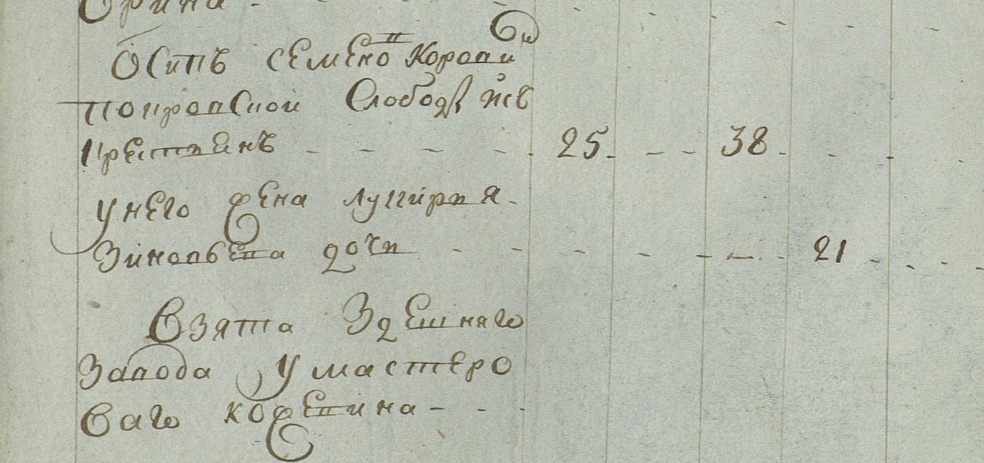 Орина - - - - -
Осипъ Семеновъ Коров
покровской Слободы изъ
крестьянъ - - - - - 25 - - - 38 - - -
У него жена Лукирья
Зиновьева дочь - - - - - - - 21 - - -
Взята здешняго
завода у мастеро
ваго Кожевина - - -